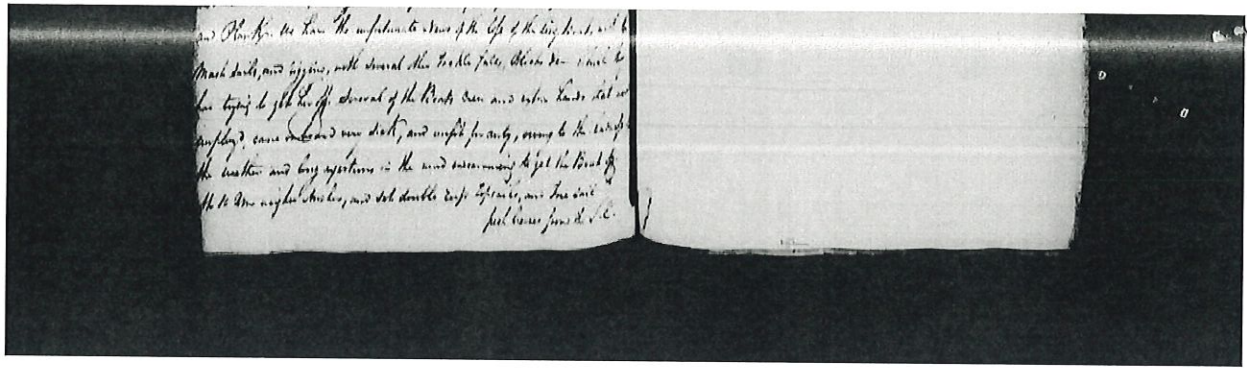 and We have the unfortunate news of the loss of the long Boat, with
Mast Sails, and rigging, with Several other Tackle falls, Blocks
trying to get her off. Several of the Boats Crew and other hands that
employ'd, came on board very Sick, and unfit for duty, owing to the
the weather and long in the mud to get the Boat off
At weighed Anchor, and Set double reef Topsails, and Fore Sail
fresh breezes from the S.E.